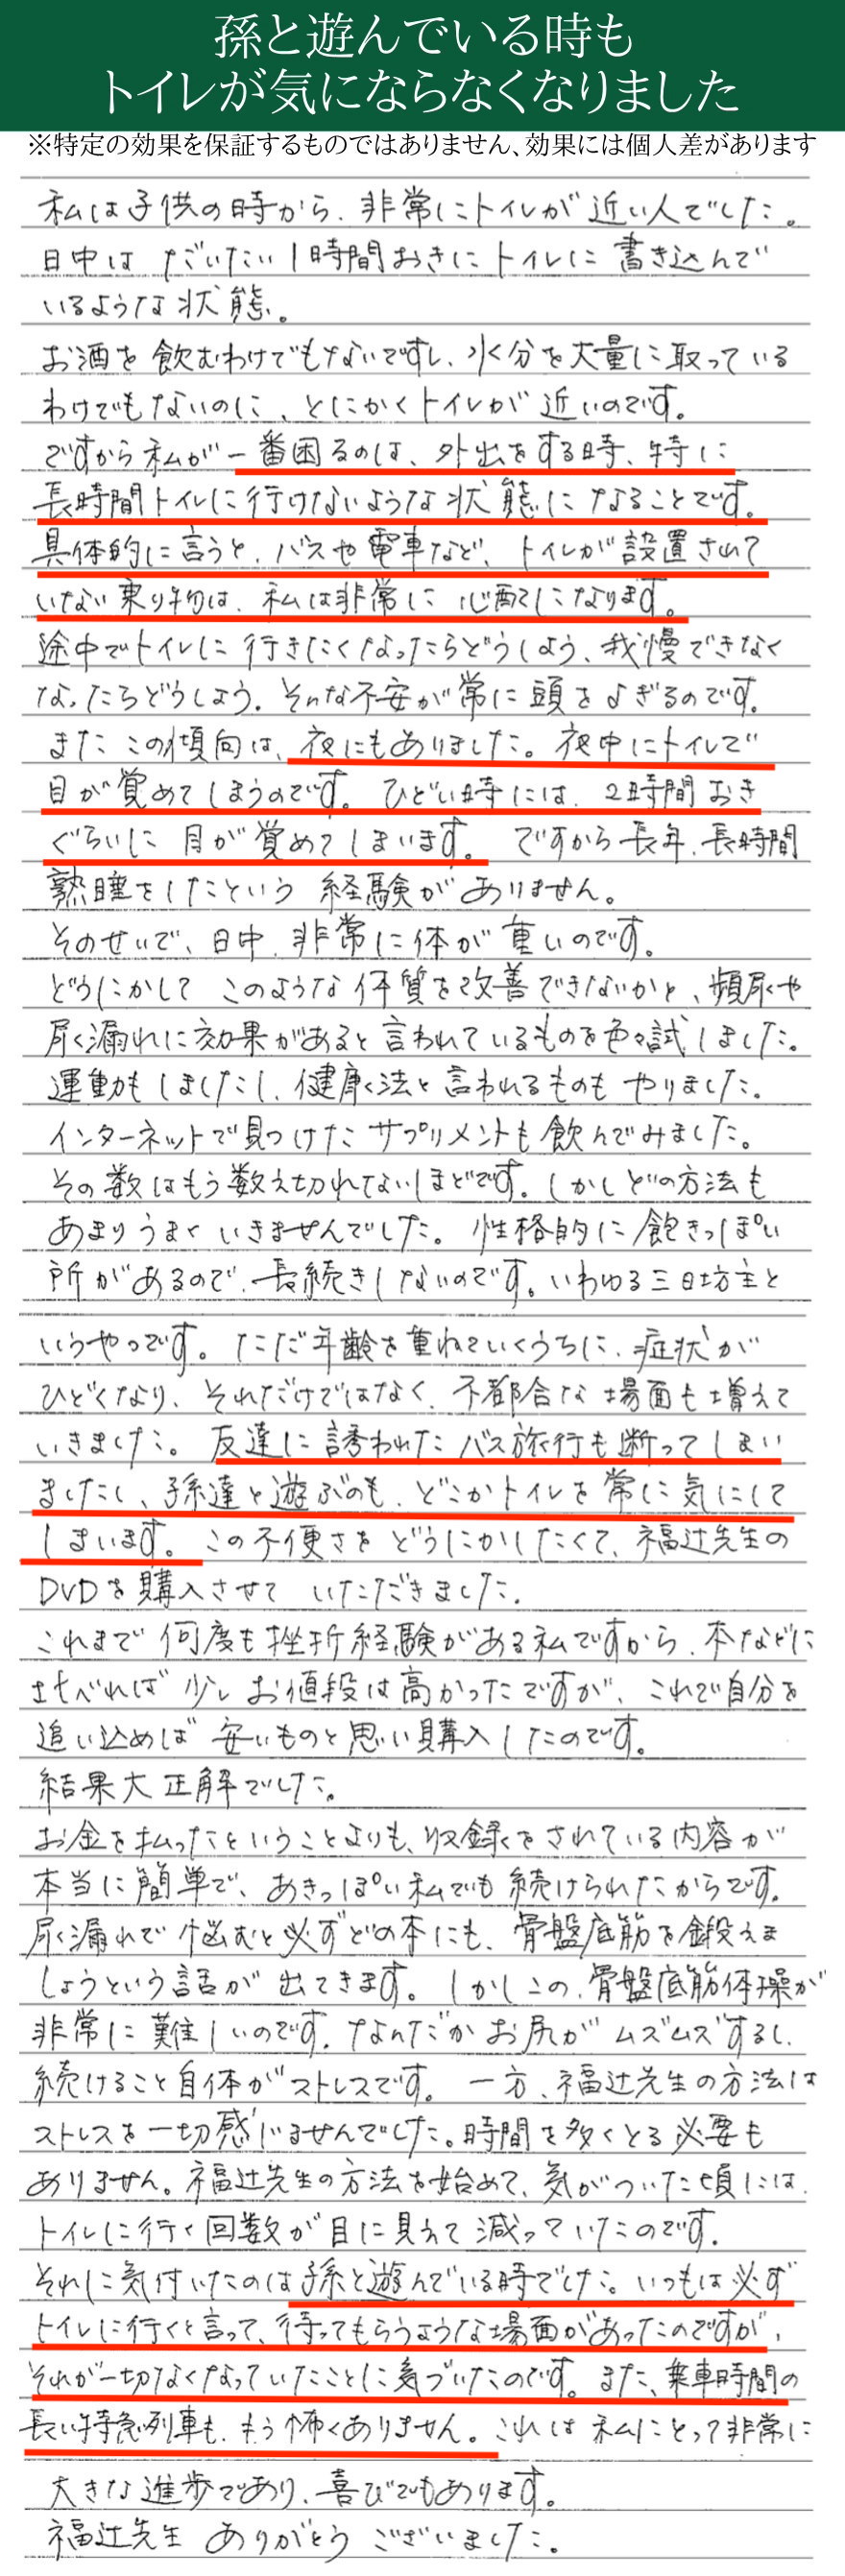 孫と遊んでいる時も
トイレが気にならなくなりました
※特定の効果を保証するものではありません、効果には個人差があります
私は子供の時から、非常にトイレが近い人でした。
日中はだいたい1時間おきにトイレに書き込んで
いるような状態。
お酒を飲むわけでもないですし、水分を大量に取っている
わけでもないのに、とにかくトイレが近いのです。
ですから私が一番困るのは、外出をする時、特に
長時間トイレに行けないような状態になることです。
具体的に言うと、バスや電車など、トイレが設置されて
いない乗り物は、私は非常に心配になります。
途中でトイレに行きたくなったらどうしよう、我慢できなく
なったらどうしよう。そんな不安が常に頭をよぎるのです。
またこの傾向は、夜にもありました。夜中にトイレで
目が覚めてしまうのです。ひどい時には、2時間おき
ぐらいに目が覚めてしまいます。ですから長年、長時間
熟睡をしたという経験がありません。
そのせいで、日中、非常に体が重いのです。
どうにかしてこのような体質を改善できないかと、頻尿や
尿漏れに効果があると言われているものを色々試しました。
運動もしましたし、健康法と言われるものもやりました。
インターネットで見つけたサプリメントも飲んでみました。
その数はもう数え切れないほどです。しかしどの方法も
あまりうまくいきませんでした。性格的に飽きっぽい
所があるので、長続きしないのです。いわゆる三日坊主と
いうやつです。ただ年齢を重ねていくうちに、症状が
ひどくなり、それだけではなく、不都合な場面も増えて
いきました。友達に誘われたバス旅行も断ってしまい
ましたし、孫達と遊ぶのも、どこかトイレを常に気にして
しまいます。この不便さをどうにかしたくて、福辻先生の
DVDを購入させていただきました。
これまで何度も挫折経験がある私ですから、本などに
比べれば少しお値段は高かったですが、これで自分を
追い込めば安いものと思い購入したのです。
結果大正解でした。
お金を払ったということよりも、収録をされている内容が
本当に簡単で、あきっぽい私でも続けられたからです。
尿漏れで悩むと必ずどの本にも、骨盤底筋を鍛えま
しょうという話が出てきます。しかしこの、骨盤底筋体操が
非常に難しいのです。なんだかお尻がムズムズするし、
続けること自体がストレスです。一方、福辻先生の方法は
ストレスを一切感じませんでした。時間を多くとる必要も
ありません。福辻先生の方法を始めて、気がついた頃には、
トイレに行く回数が目に見えて減っていたのです。
それに気付いたのは孫と遊んでいる時でした。いつもは必ず
トイレに行くと言って、待ってもらうような場面があったのですが、
それが一切なくなっていたことに気づいたのです。また、乗車時間の
長い特急列車も、もう怖くありません。これは私にとって非常に
大きな進歩であり、喜びでもあります。
福辻先生ありがとうございました。